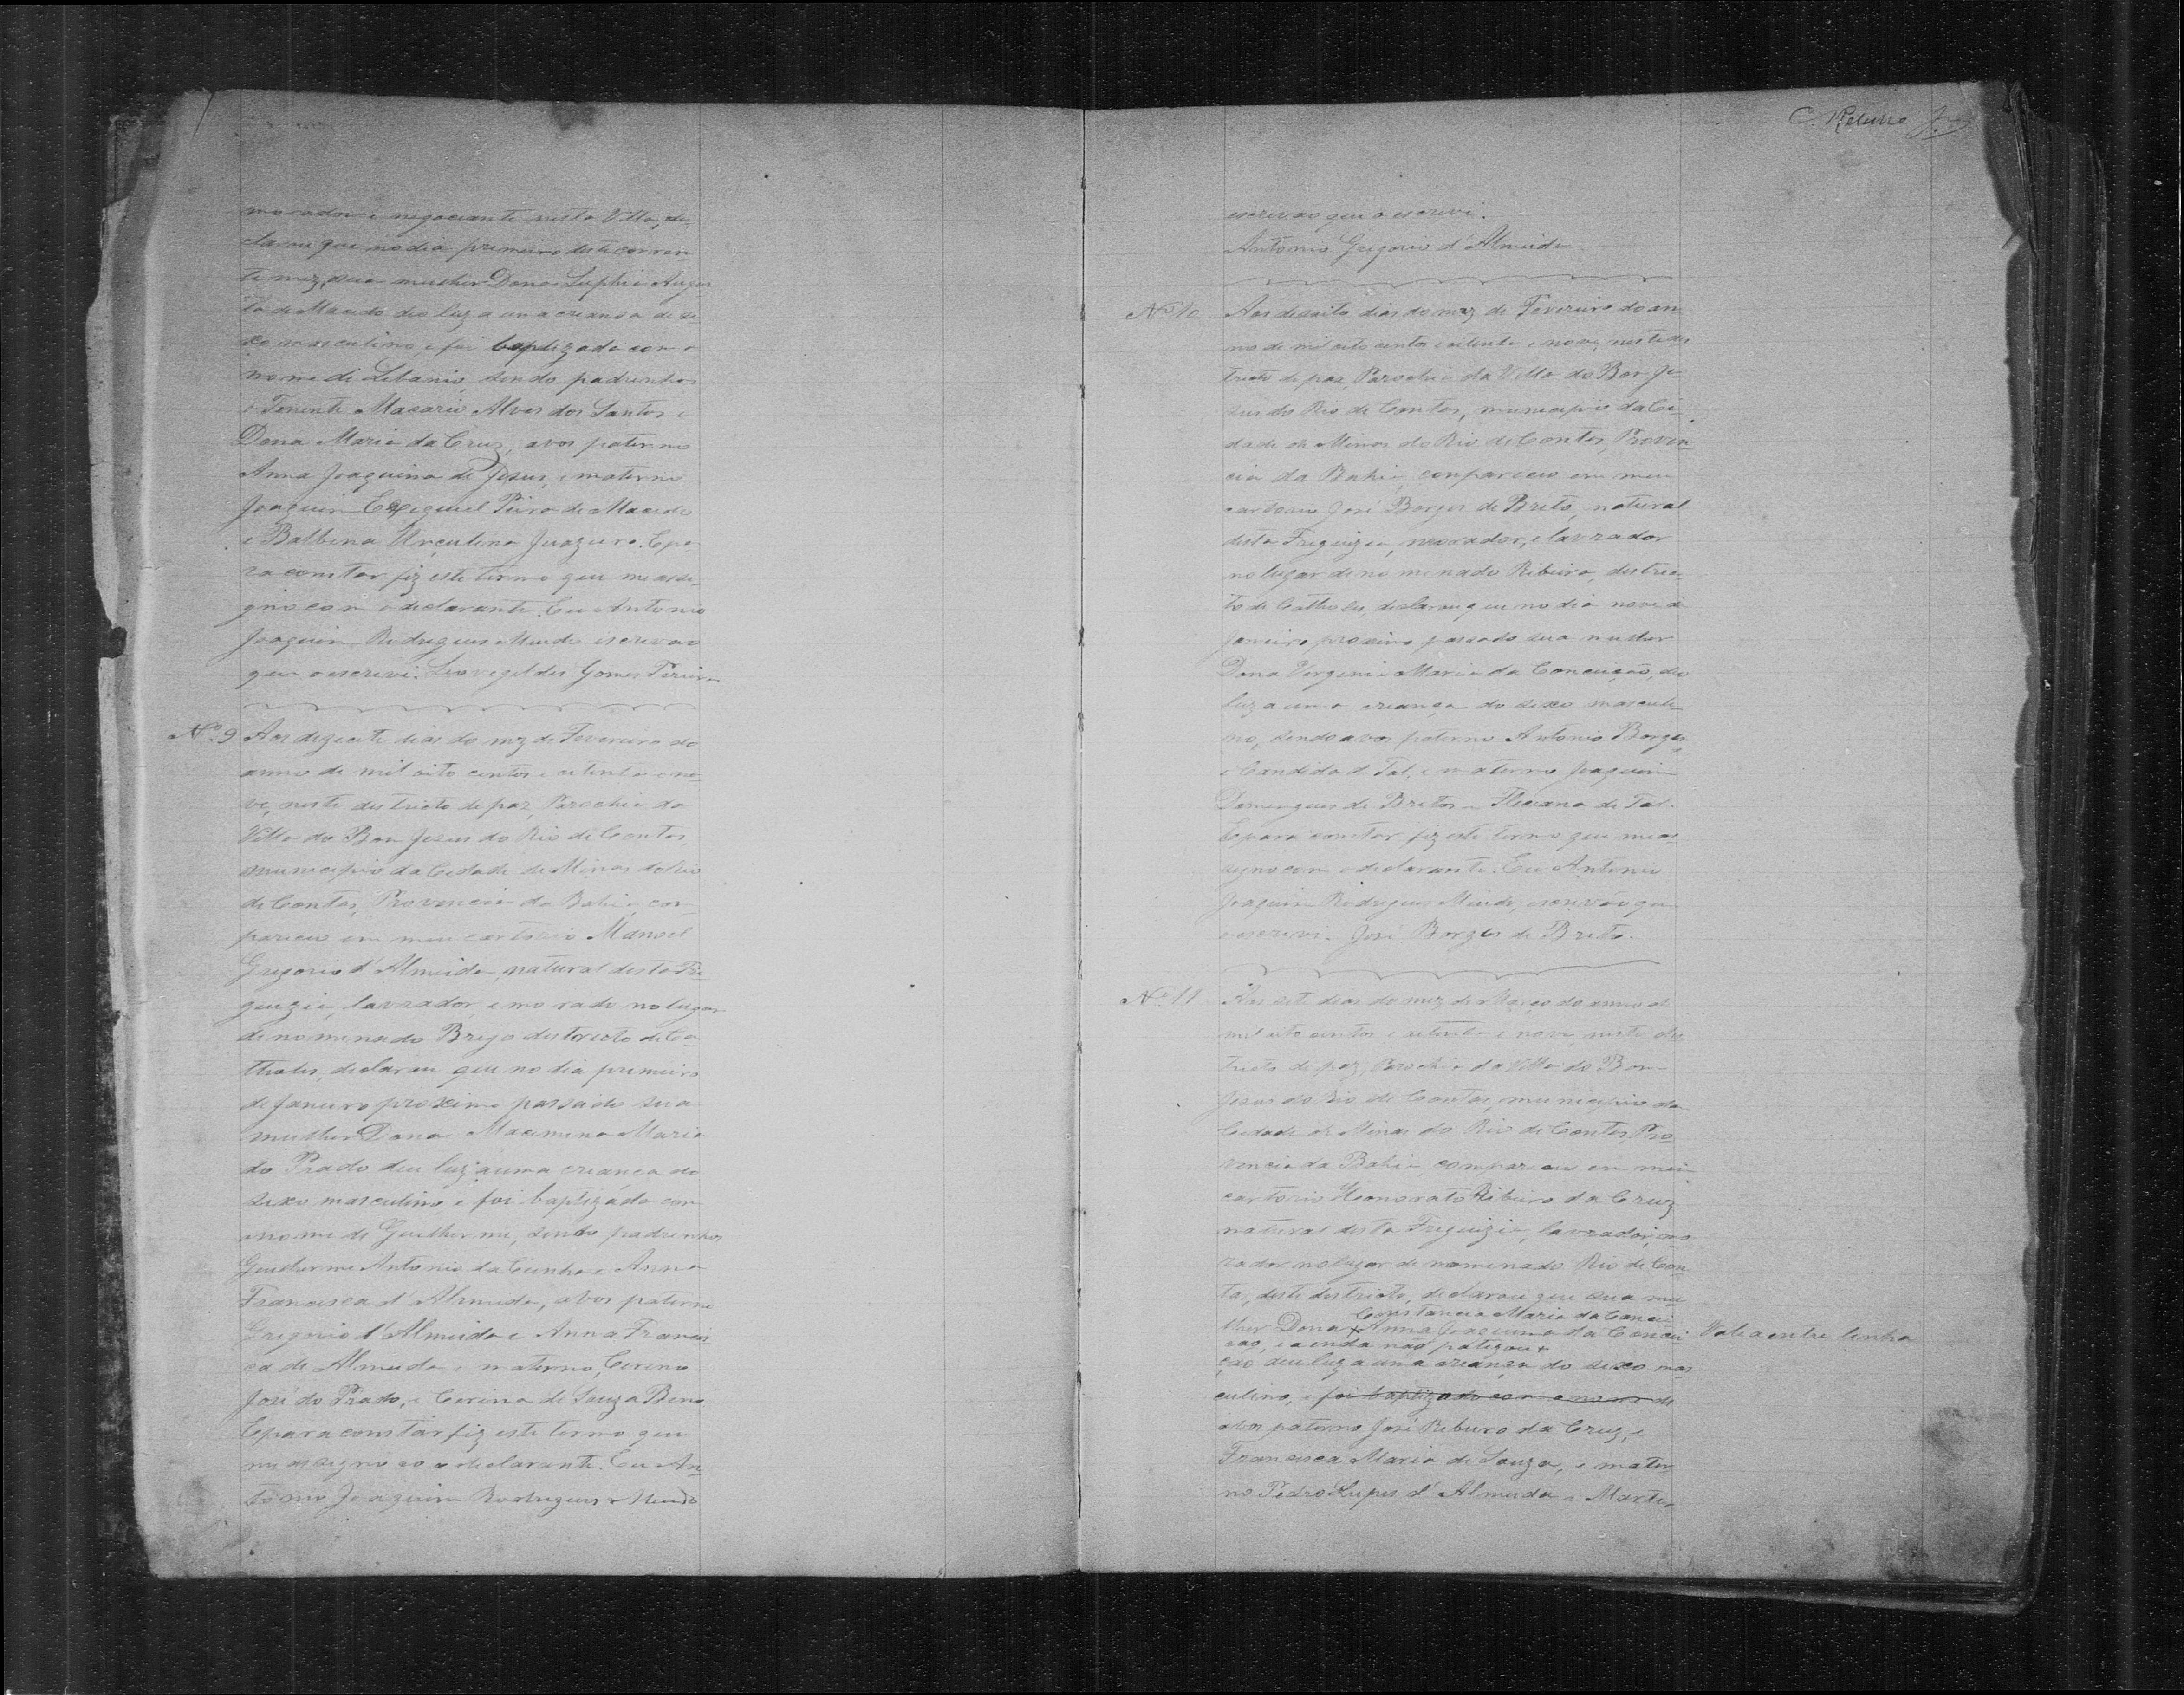 morador e negociante nesta Villa, de
clarou que no dia primeiro deste corren
te mez, sua mulher Dona Sophia Augus
ta de Macedo deo luz a uma criansa de se
xo masculino, e foi baptizado com o
nome di Libanio, sendo padrinhos
o Tenente Macario Alves dos Santos e
Dona Maria da Cruz, avos paterno
Anna Joaquina de Jesus, e materno
Joaquim Exequiel de Macedo
e Balbina Urculina. Epa
ra constar fiz este termo que me assi
gno com o declarante. Eu Antonio
Joaquim Rodrigues escrivão
que o escrevi. Leovegildes Gomes
Nº 9 Aos dezesete dias do mez de Fevereiro do
anno de mil oito centos e setenta e no
ve, neste districto de paz, Parochia da
Villa do Bom Jesus do Rio de Contas
municipio da Cidade de Minas do Rio
de Contas, Provincia da Bahia, com
pareceu em meu cartorio Manoel
Gregorio d'Almeida, natural desta Fre
guezia, lavrador, e morado no lugar
denominado Brejo destricto de Ca
tholes, declarou que no dia primeiro
de Janeiro proximo passado sua
mulher Dona Macimina Maria
do Prado deu luz a uma creanca do
sexo masculino e foi baptizado com
o nome de Guilherme, sendo padrinhos
Guilherme Antonio da Cunha e Anna
Francisca d'Almeida, avos paterno
Gregorio d'Almeida e Anna Francis
ca de Almeida e materno, Cerino
José do Prado, e Cerina de Souza
Epara constar fiz este termo que
me assigno com o declarante. Eu An
tonio Joaquim Rodrigues
C. Ribeiro
escrivao que o escrevi.
Antonio Gregorio d'Almeida
Nº 10 Aos desoito dias do mez de Fevereiro do an
no de mil oito centos e setenta e nove, neste dis
tricto de paz, Parochia da Villa do Bom Je
sus do Rio de Contas, municipio da Ci
dade de Minas do Rio de Contas, Provin
cia da Bahia, compareceu em meu
cartorio José Borges de Brito, natural
desta Freguezia, morador, e lavrador
no lugar denominado Ribeiro, destric
to de Catholes, declarou que no dia nove de
Janeiro proximo passado sua mulher
Dona Vergenia Maria da Conceição, deo
luz a uma creança do sexo masculi
no, sendo avos paterno Antonio Borges
e Candida d Tal, e materno Joaquim
Domingues de Britos e Feliciana de Tal.
Epara constar fiz este termo que me as
signo com o declarante. Eu Antonio
Joaquim Rodrigues, escrivão que
o escrevi. José Borges de Brito.
Nº 11 Aos sete dias do mez de Março do anno de
mil oito centos e setenta e nove, neste dis
tricto de paz, Parochia da Villa do Bom
Jesus do Rio de Contas, municipio da
Cidade de Minas do Rio de Contas Pro
vencia da Bahia, compareceu em meu
cartorio Honorato Ribeiro da Cruz
natural desta Freguizia, lavrador, mo
rador no lugar denominado Rio de Con
tas, deste destricto, declarou que sua mu
Constancia Maria da Concei
lher Dona x Anna Joaquina da Concei Valia entre linha
cao, e ainda não batizou x
ção deu luz a uma creanza do sexo mas
culino, e foi baptizado com o nome de
avos paterno José Ribeiro da Cruz, e
Francisca Maria de Souza, e mater
no Pedro Lopes d'Almeida e